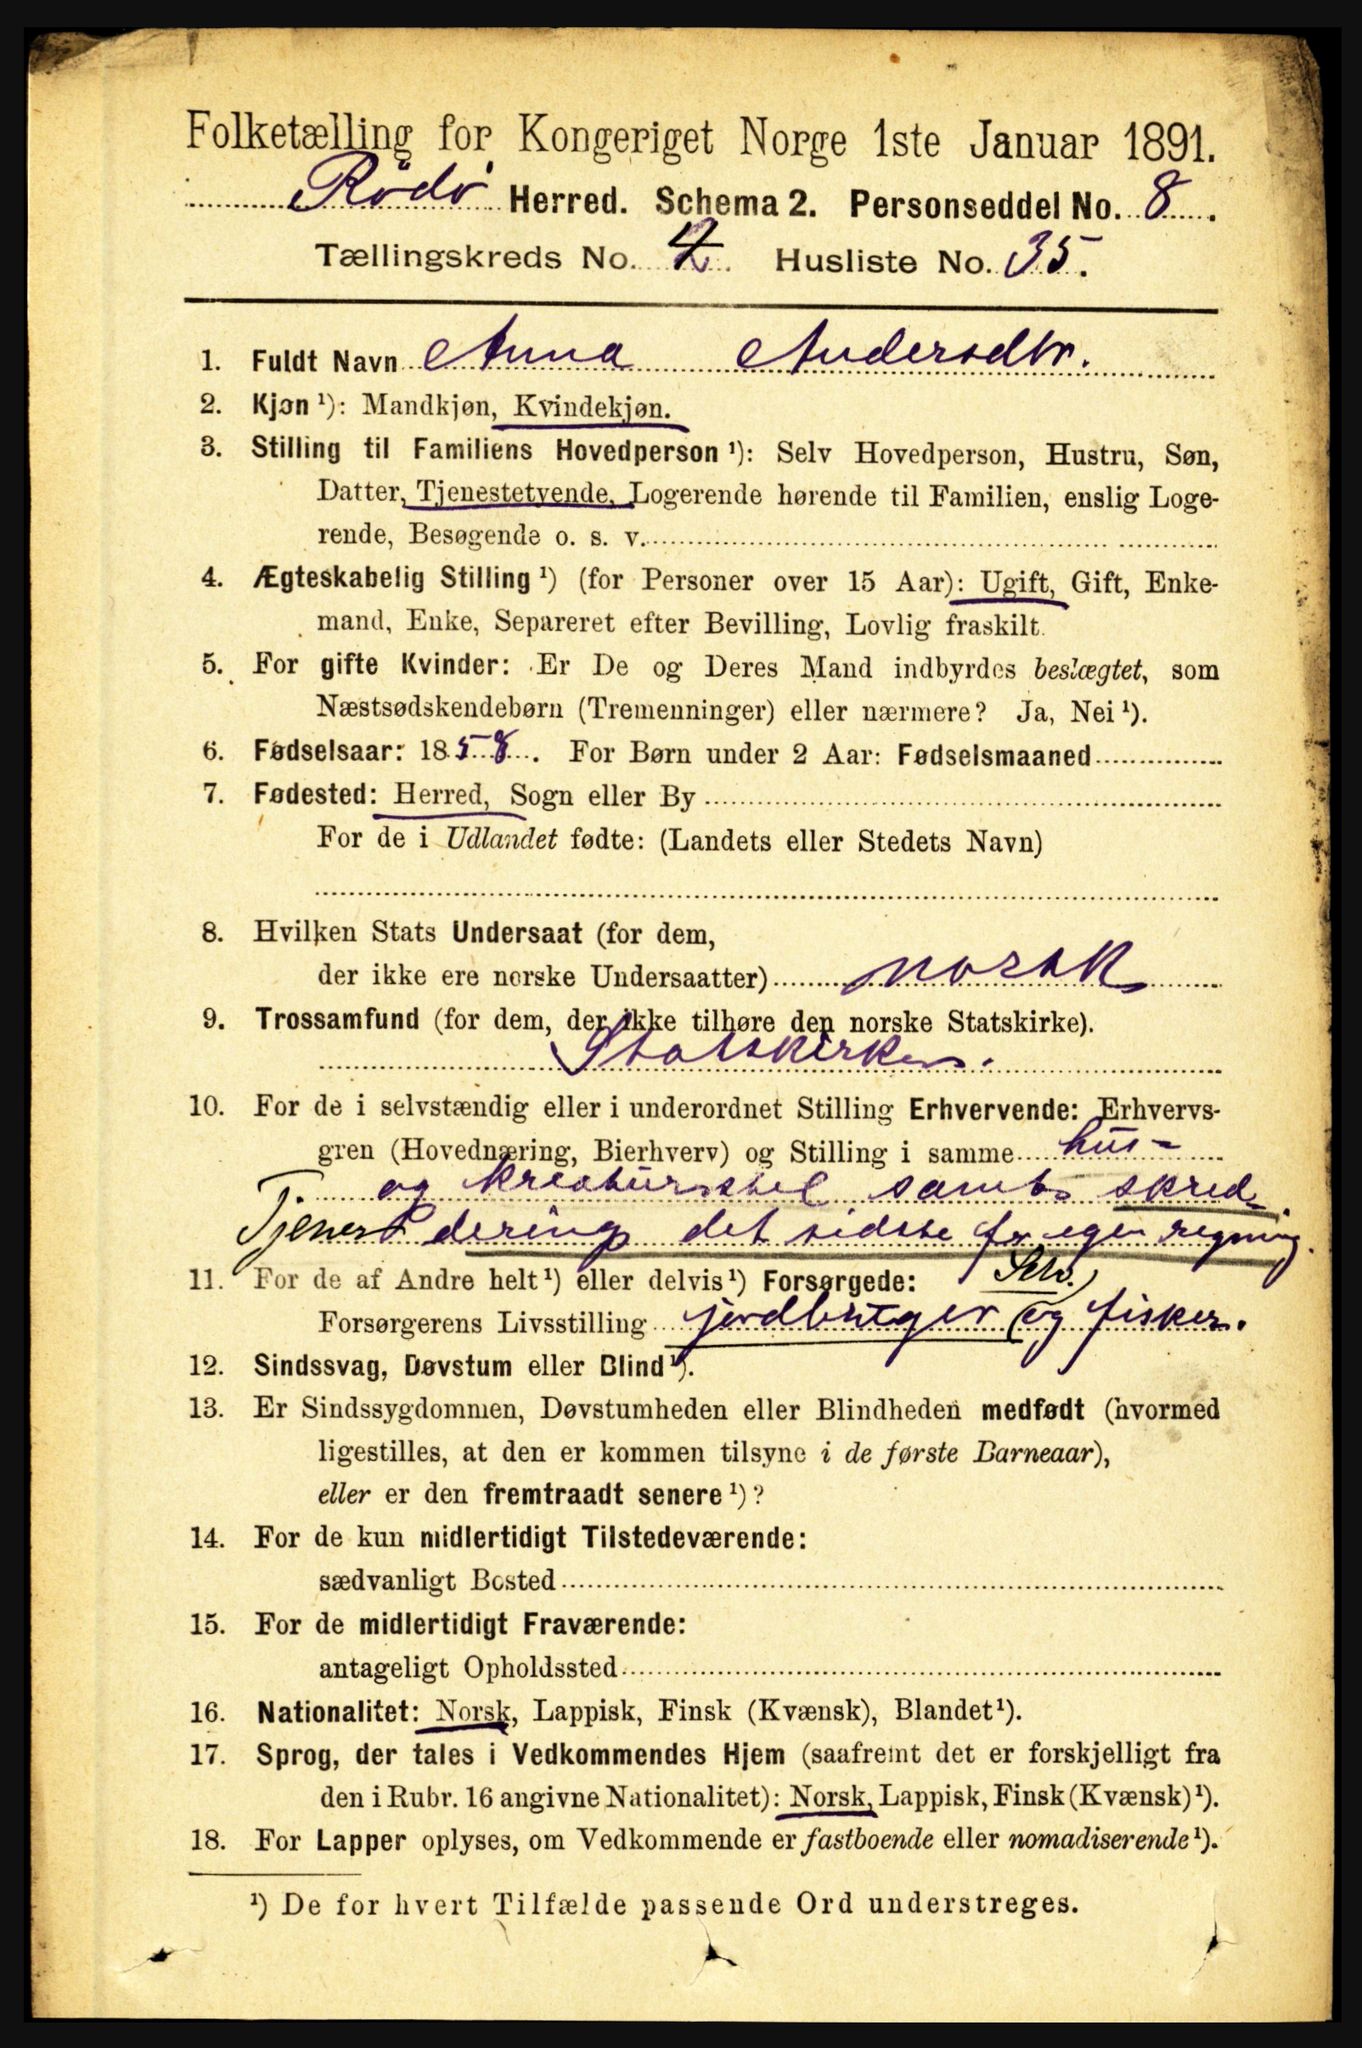 Folketælling for Kongeriget Norge 1ste Januar 1891.
Rödö Herred. Schema 2. Personseddel No. 8.
Tællingskreds No. 2. Husliste No. 35.
1. Fuldt Navn Anna Andersdtr.
2. Kjøn ¹): Mandkjøn, Kvindekjøn.
3. Stilling til Familiens Hovedperson ¹): Selv Hovedperson, Hustru, Søn,
Datter, Tjenestetyende, Logerende hørende til Familien, enslig Loge-
rende, Besøgende o. s. v.
4. Ægteskabelig Stilling ¹) (for Personer over 15 Aar): Ugift, Gift, Enke-
mand, Enke, Separeret efter Bevilling, Lovlig fraskilt.
5. For gifte Kvinder: Er De og Deres Mand indbyrdes beslægtet, som
Næstsødskendebørn (Tremenninger) eller nærmere? Ja, Nei ¹).
6. Fødselsaar: 1858. For Børn under 2 Aar: Fødselsmaaned
7. Fødested: Herred, Sogn eller By
For de i Udlandet fødte: (Landets eller Stedets Navn)
8. Hvilken Stats Undersaat (for dem,
der ikke ere norske Undersaatter) norsk
9. Trossamfund (for dem, der ikke tilhøre den norske Statskirke).
Statskirken.
10. For de i selvstændig eller i underordnet Stilling Erhvervende: Erhvervs-
gren (Hovednæring, Bierhverv) og Stilling i samme hus-
og kreaturstel samt skred-
Tjener dering det sidste for egen regning.
11. For de af Andre helt ¹) eller delvis ¹) Forsørgede: Selv.
Forsørgerens Livsstilling jordbruger og fisker.
12. Sindssvag, Døvstum eller Blind ¹).
13. Er Sindssygdommen, Døvstumheden eller Blindheden medfødt (hvormed
ligestilles, at den er kommen tilsyne i de første Barneaar),
eller er den fremtraadt senere ¹)?
14. For de kun midlertidigt Tilstedeværende:
sædvanligt Bosted
15. For de midlertidigt Fraværende:
antageligt Opholdssted
16. Nationalitet: Norsk, Lappisk, Finsk (Kvænsk), Blandet ¹).
17. Sprog, der tales i Vedkommendes Hjem (saafremt det er forskjelligt fra
den i Rubr. 16 angivne Nationalitet): Norsk, Lappisk, Finsk (Kvænsk) ¹).
18. For Lapper oplyses, om Vedkommende er fastboende eller nomadiserende ¹).
¹) De for hvert Tilfælde passende Ord understreges.